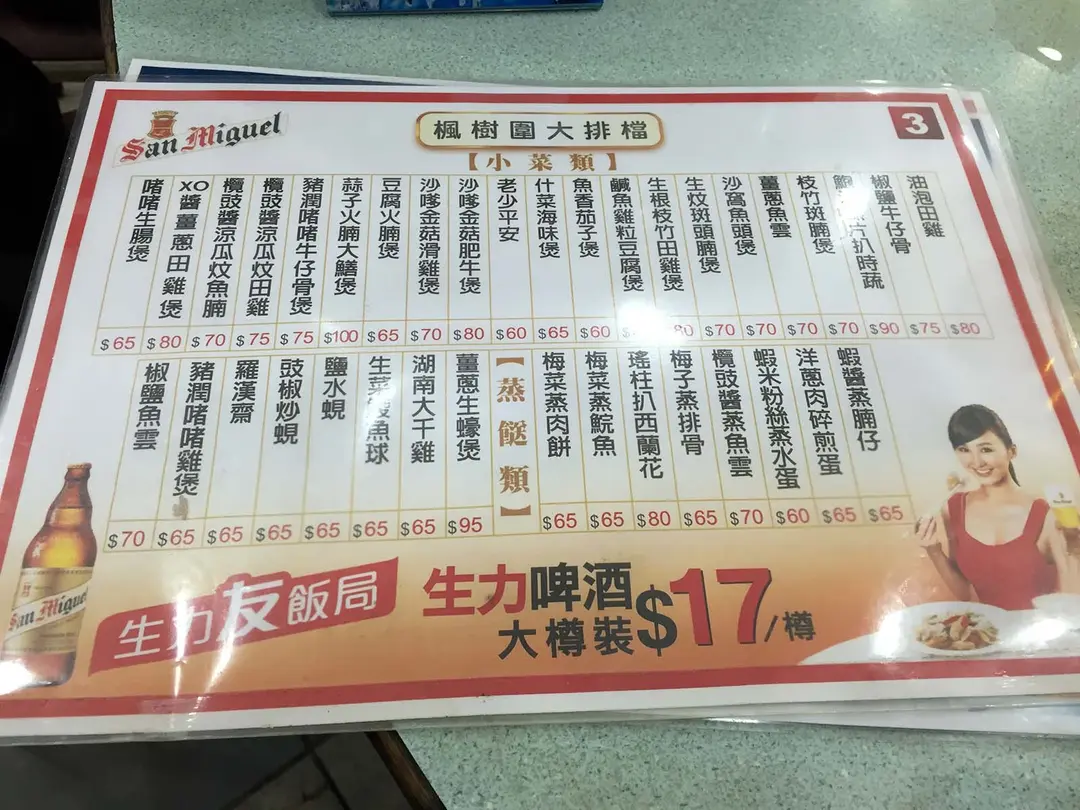 San Miguel
楓樹圍大排檔
3
【小菜類】
油泡田雞
$80
椒鹽牛仔骨
$75
片扒時蔬
$90
枝竹斑腩煲
$70
薑蔥魚雲
$70
沙窩魚頭煲
$70
生炆斑頭腩煲
$70
生根枝竹田雞煲
鹹魚雞粒豆腐煲
魚香茄子煲
$60
什菜海味煲
$65
老少平安
$60
沙嗲金菇肥牛煲
$80
沙嗲金菇滑雞煲
$70
豆腐火腩煲
$65
蒜子火腩大鱔煲
$100
豬潤啫啫牛仔骨煲
$75
欖豉醬涼瓜炆田雞
$75
欖豉醬涼瓜炆魚腩
$70
XO醬薑蔥田雞煲
$80
啫啫生腸煲
$65
蝦醬蒸腩仔
$65
洋蔥肉碎煎蛋
$65
蝦米粉絲蒸水蛋
$60
欖豉醬蒸魚雲
$70
梅子蒸排骨
$65
瑤柱扒西蘭花
$80
梅菜蒸鯇魚
$65
梅菜蒸肉餅
$65
【蒸餸類】
薑蔥生蠔煲
$95
湖南大千雞
$65
生菜鯪魚球
$65
鹽水蜆
$65
豉椒炒蜆
$65
羅漢齋
$65
豬潤啫啫雞煲
$65
椒鹽魚雲
$70
San Miguel
生力友飯局
生力啤酒
大樽裝
$17/樽